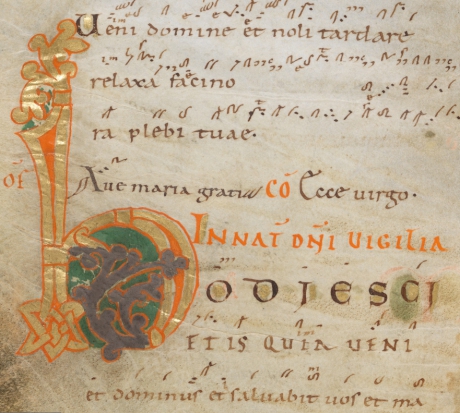 Ueni domine et noli tardare
relaxa facino
ra plebi tuae.
of Aue maria gratia CO Ecce uirgo.
IN NAT DNI UIGILIA
hODIE SCI
ETIS QUIA UENI
et dominus et saluabit uos et ma